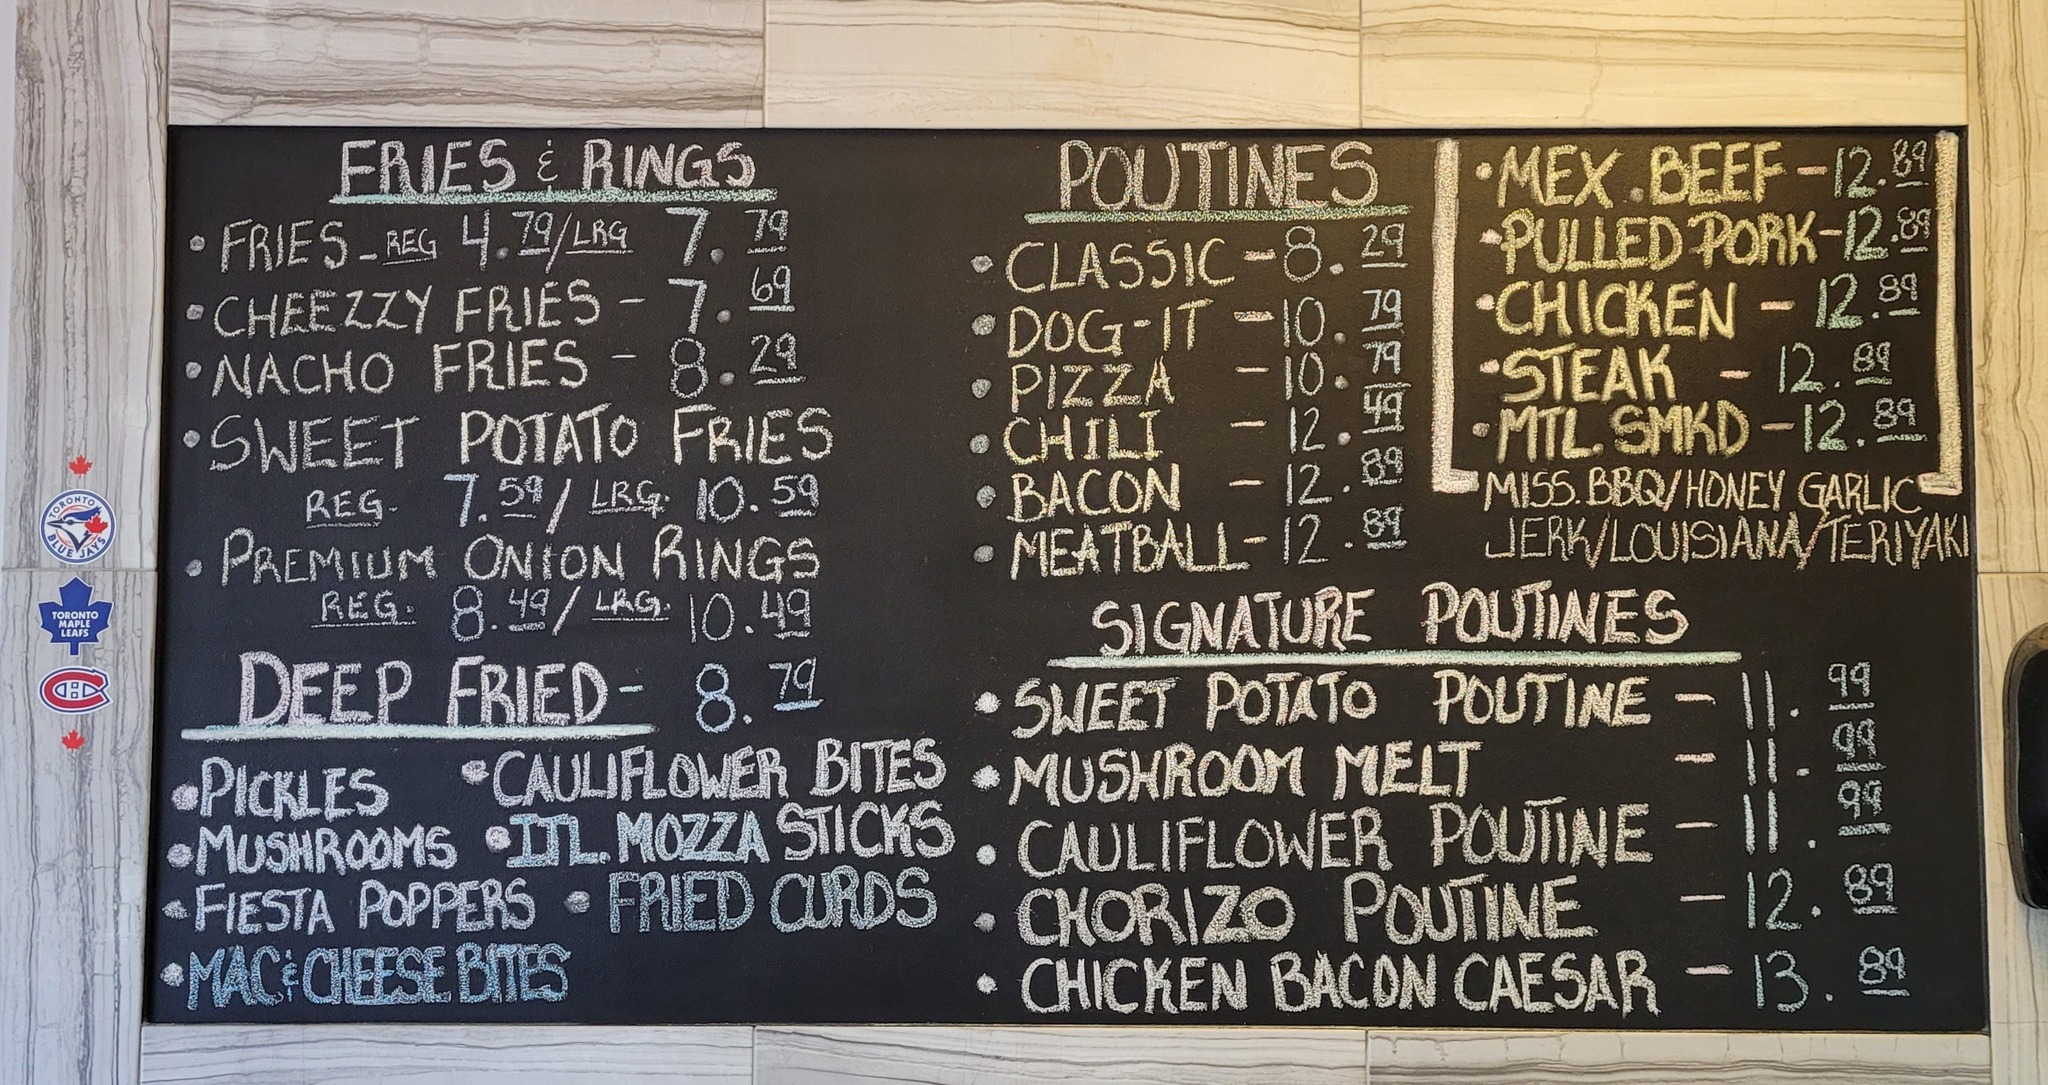 FRIES & RINGS
• FRIES - REG 4.79 / LRG 7.79
• CHEEZZY FRIES - 7.69
• NACHO FRIES - 8.29
• SWEET POTATO FRIES
REG. 7.59 / LRG. 10.59
• PREMIUM ONION RINGS
REG. 8.49 / LRG. 10.49
DEEP FRIED - 8.79
• PICKLES
• MUSHROOMS
• FIESTA POPPERS
• MAC & CHEESE BITES
• CAULIFLOWER BITES
• ITL. MOZZA STICKS
• FRIED CURDS
POUTINES
• CLASSIC - 8.29
• DOG-IT - 10.79
• PIZZA - 10.79
• CHILI - 12.49
• BACON - 12.89
• MEATBALL - 12.89
• MEX. BEEF - 12.89
• PULLED PORK - 12.89
• CHICKEN - 12.89
• STEAK - 12.89
• MTL. SMKD - 12.89
MISS. BBQ/HONEY GARLIC
JERK/LOUISIANA/TERIYAKI
SIGNATURE POUTINES
• SWEET POTATO POUTINE - 11.99
• MUSHROOM MELT - 11.99
• CAULIFLOWER POUTINE - 11.99
• CHORIZO POUTINE - 12.89
• CHICKEN BACON CAESAR - 13.89
TORONTO
BLUE JAYS
TORONTO
MAPLE
LEAFS